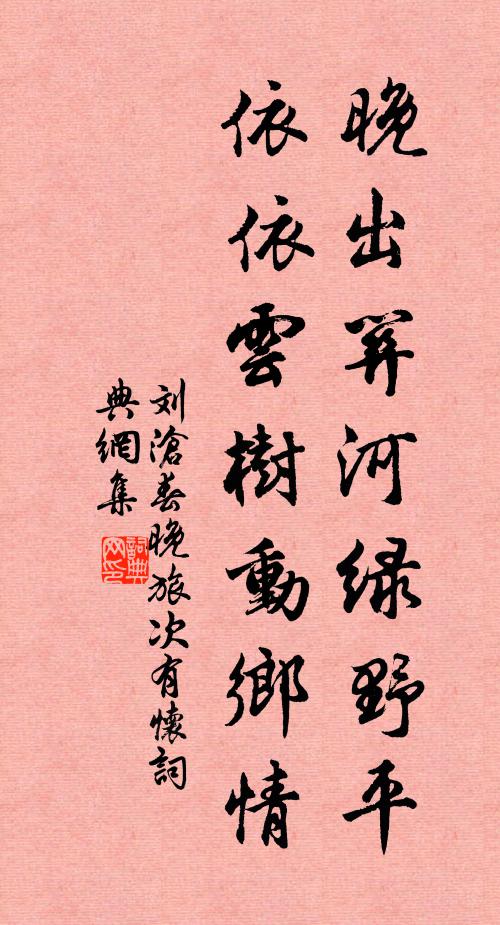 晚出關河绿野平
依依雲樹動鄉情
刘滄春晚旅次有懷詞
典網集
詞典
网印